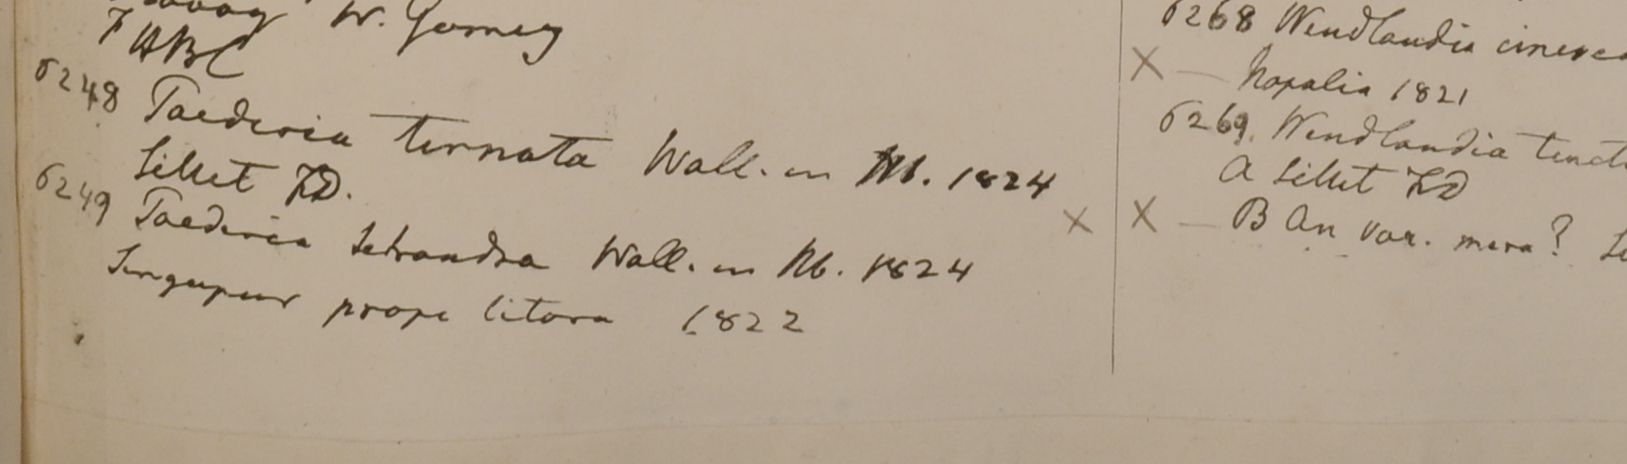 W. Gomez
F HBC
6248 Paederia ternata Wall. in Hb. 1824
Sillet FD.
6249 Paederia tetrandra Wall. in Hb. 1824
Singapur prope litora 1822
6268 Wendlandia cinerea
X — Napalia 1821
6269. Wendlandia tinct
A Sillet FD
X X — B An var. mera?